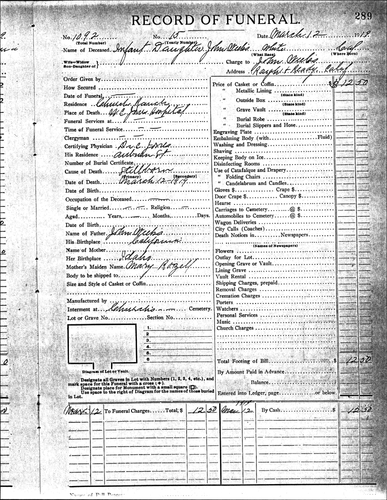 289
RECORD OF FUNERAL.
No. 1092 No. 15 Date March 12 19
(Total Number) (Yearly Number)
Name of Deceased Infant Daughter John Weeks White
(What Race) (Where Born)
Charge to John Weeks
Address
Order Given by
How Secured
Date of Funeral
Residence Church Ranch
Place of Death W.E. Jones Hospital
Funeral Services at
Time of Funeral Service
Clergyman
Certifying Physician Dr. E. Jones
His Residence Auburn St
Number of Burial Certificate
Cause of Death Stillborn
(Primary) (Secondary)
Date of Death March 12 1919
Occupation of the Deceased
Single or Married Religion
Date of Birth
Aged Years, Months, Days.
Name of Father John Weeks
His Birthplace California
Name of Mother
Her Birthplace Idaho
Mother's Maiden Name Mary Rogell
Body to be shipped to
Size and Style of Casket or Coffin
Manufactured by
Interment at Cemetery
Lot or Grave No. Section No.
1.
2.
3.
4.
5.
Diagram of Lot or Vault.
Designate all Graves in Lot with Numbers (1, 2, 3, 4, etc.), and
mark space for this Funeral with a cross
Designate place for Monument with a small square
Use space to the right of Diagram for the names of those buried
in Lot.
Price of Casket or Coffin $ 12 50
Metallic Lining
(State kind)
Outside Box
(State kind)
Grave Vault
(State kind)
Burial Robe
(State kind)
Burial Slippers and Hose
Engraving Plate
Embalming Body (with Fluid)
Washing and Dressing
Shaving
Keeping Body on Ice
Disinfecting Rooms
Use of Catafalque and Drapery
" Folding Chairs
" Candelabrum and Candles
Gloves $ Crape $
Door Crape $ Canopy $
Hearse
Carriages to Cemetery @ $
Automobiles to Cemetery @ $
Wagon Deliveries
City Calls (Coaches)
Death Notices in Newspapers
(Names of Newspapers)
Flowers
Outlay for Lot
Opening Grave or Vault
Lining Grave
Vault Rental
Shipping Charges, prepaid
Removal Charges
Cremation Charges
Porters
Watchers
Personal Services
Music
Church Charges
Total Footing of Bill $ 12 50
By Amount Paid in Advance
Balance
Entered into Ledger, page or below.
Mar 12 To Funeral Charges, Total; $ 12 50 Mar 12 By Cash $ 12 50